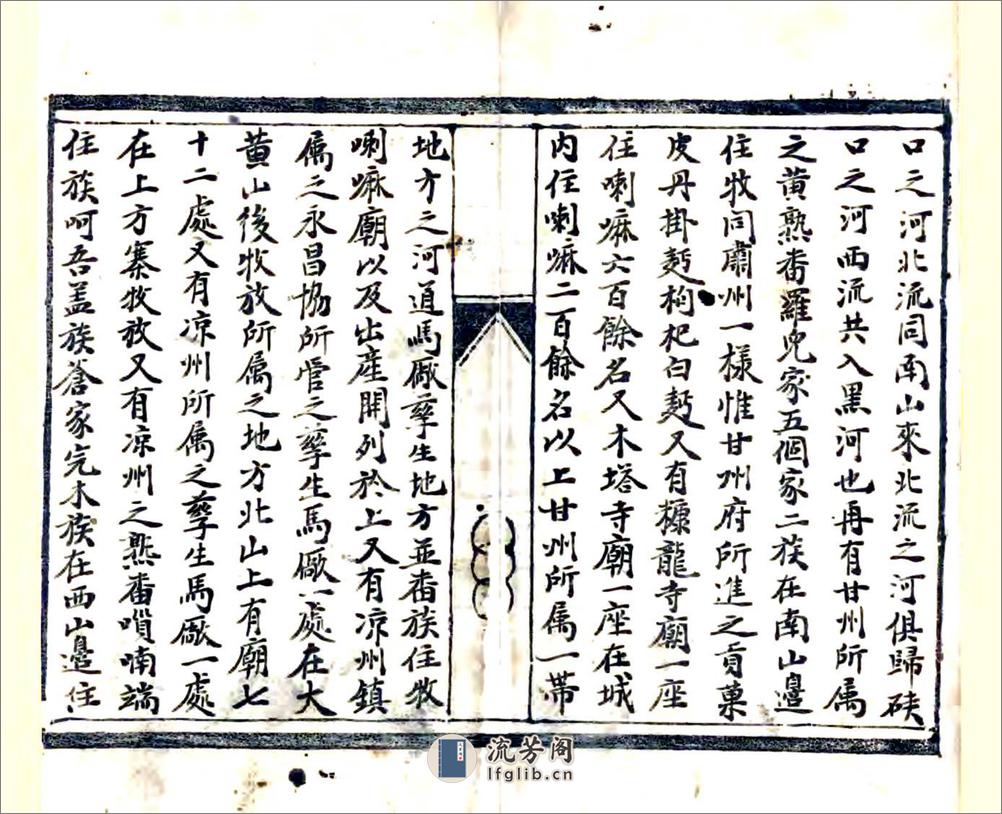 口之河北流同南山來北流之河俱歸硤
口之河西流共入黑河也再有甘州所属
之黄熟番羅兒家五個家二族在南山邉
住牧同肅州一樣惟甘州府所進之貢菓
皮丹掛麪枸杞白麪又有糠龍寺廟一座
住喇嘛六百餘名又木塔寺廟一座在城
内住喇嘛二百餘名以上甘州所属一带
地方之河道馬厰孳生地方並番族住牧
喇嘛廟以及出産開列於上又有凉州鎮
属之永昌協所管之孳生馬厰一處在大
黄山後牧放所属之地方北山上有廟七
十二處又有凉州所属之孳生馬厰一處
在上方寨牧放又有凉州之熟番嗩喃端
住族呵吾盖族蒼家完木族在西山邉住
流芳阁
lfglib.cn